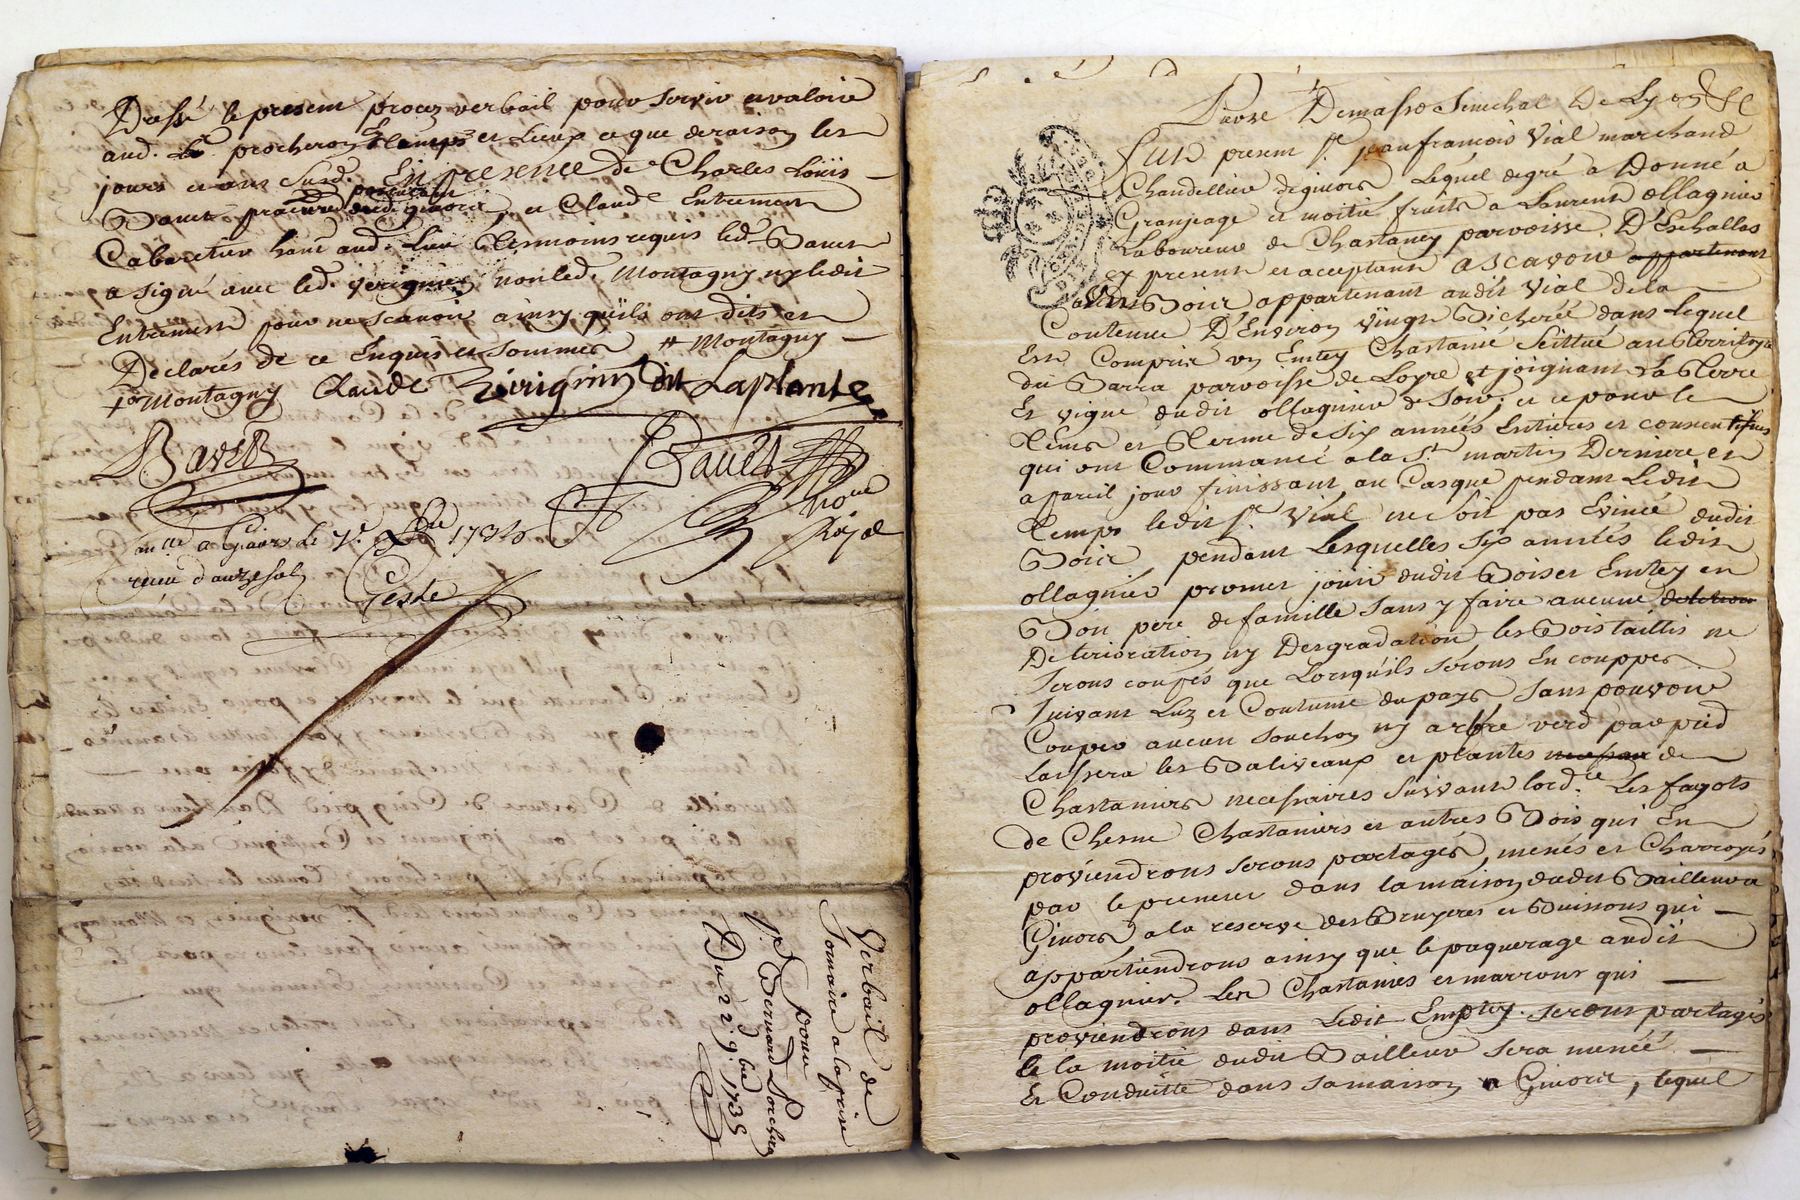 Dressé le present procez verbail pour servir et valoir
aud. Sr. procheron temps et lieux ce que de raison les
jours et ans susd. En presence de Charles Loüis
Bavet praticien dud. givors, et Claude Entremont
Cabaretier hant aud. lieu tesmoins requis led. Bavet
a signé avec led. Verignieu non led. Montagny ny ledit
Entremont pour ne scavoir ainsy quils ont dits et
Declarés de ce Enquis et sommés # Montagny
# Montagny Claude Virignin dit Laplante
Bavet
Bavet
no.re
Royal
a Givors le 7e. 1735
receu douze sols
Geste
Verbail de
Sommaire a la prise
pour
Sr. Bernard Porchero
Du 22e. 9bre 1735
Fut present Sr. jean françois Vial marchand
Chandellier de givors lequel de gré a Donné a
Granjeage et moitié fruits a Laurent ollagnier
Laboureur de Chastaney parroisse D'Eschallas
cy present et acceptant a scavoir appartenant
un Bois appartenant audit Vial de la
Contenue D'Environ Vingt Bicherée dans lequel
Est Compris un Emtey Chastanié scittué au territoire
du Barra parroisse de Loyre et joignant La terre
Et vigne dudit ollagnier de soir; et ce pour le
tems et terme de six années Entieres et consecutifves
qui ont Commancé a la St. martin Derniere et
a pareil jour finissant au Casque pendant Ledit
temps ledit Sr. Vial ne soit pas Evincé dudit
Bois pendant Lesquelles six années ledit
ollagnier promet jouir dudit Bois et Emtey en
Bon pere de famille sans y faire aucune
Deterioration ny Desgradation les Bois taillis ne
seront coupés que Lorsqu'ils seront En couppes
suivant Luz et Coutume du pays, sans pouvoir
Couper aucun souchon ny arbre verd par pied
Laissera les Baliveaux et plantes de
Chastaniers necessaires suivant lord.ce Les fagots
de Chesne Chastaniers et autres Bois qui En
proviendrons serons partagés, menés et Charroyés
par le preneur dans la maison dudit Bailleur a
Givors a la reserve des Bruyeres et Buissons qui
appartiendrons ainsy que le paquerage audit
ollagnier. Les Chastanies et marrons qui
proviendrons dans Ledit Emptey serons partagés
Et la moitié dudit Bailleur sera menée
Et Conduitte dans sa maison a Givors, lequel